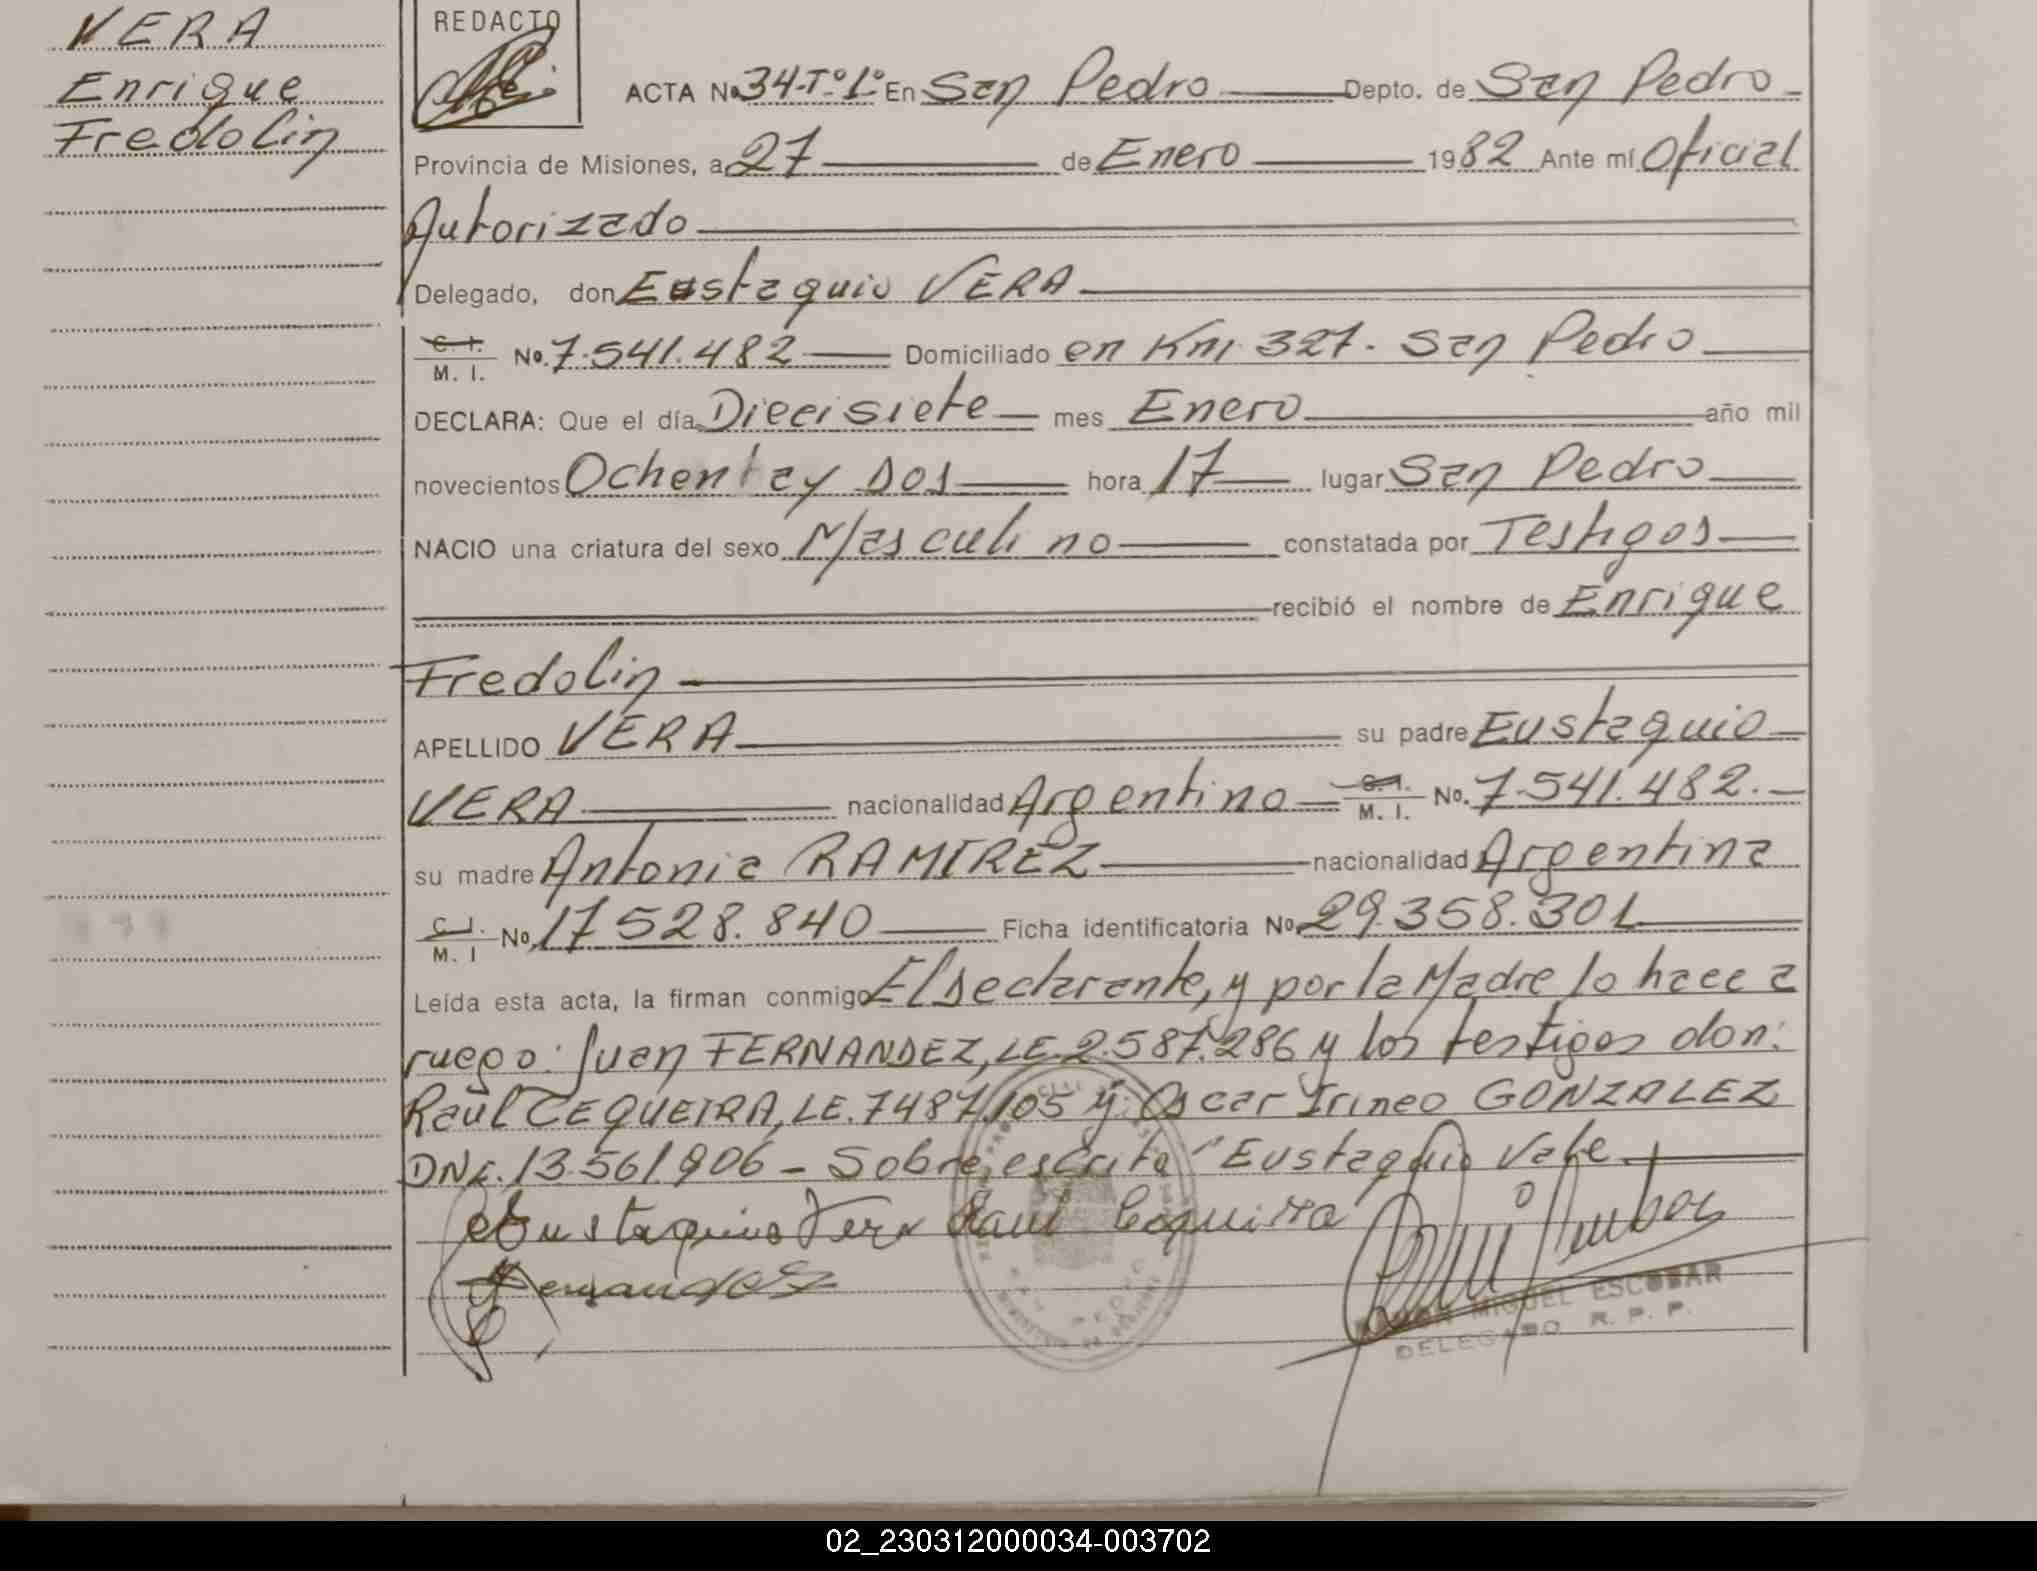 VERA
Enrique
Fredolin
REDACTO
ACTA No. 34-Tº-1º En San Pedro Depto. de San Pedro
Provincia de Misiones, a 27 de Enero 1982 Ante mí Oficial
Autorizado
Delegado, don Eustaquio VERA
C. I. M. I. No. 7.541.482 Domiciliado en Km. 327. San Pedro
DECLARA: Que el día Diecisiete mes Enero año mil
novecientos Ochenta y Dos hora 17 lugar San Pedro
NACIO una criatura del sexo Masculino constatada por Testigos
recibió el nombre de Enrique
Fredolin
APELLIDO VERA su padre Eustaquio
VERA nacionalidad Argentino C. I. M. I. No. 7.541.482.
su madre Antonia RAMIREZ nacionalidad Argentina
C. I. M. I No. 17 528.840 Ficha identificatoria No. 29.358.301
Leída esta acta, la firman conmigo El Declarante, y por la Madre lo hace a
ruego: Juan FERNANDEZ, LE. 2.587.286 y los testigos don:
Raúl CEQUEIRA, LE. 7487.105 y: Oscar Irineo GONZALEZ
DNI. 13.561.906 - Sobre escrito "Eustaquio Vale
Eustaquio Vera Raul Cequeira
Fernandez
RAMON MIGUEL ESCOBAR
DELEGADO R. P. P.
02_230312000034-003702